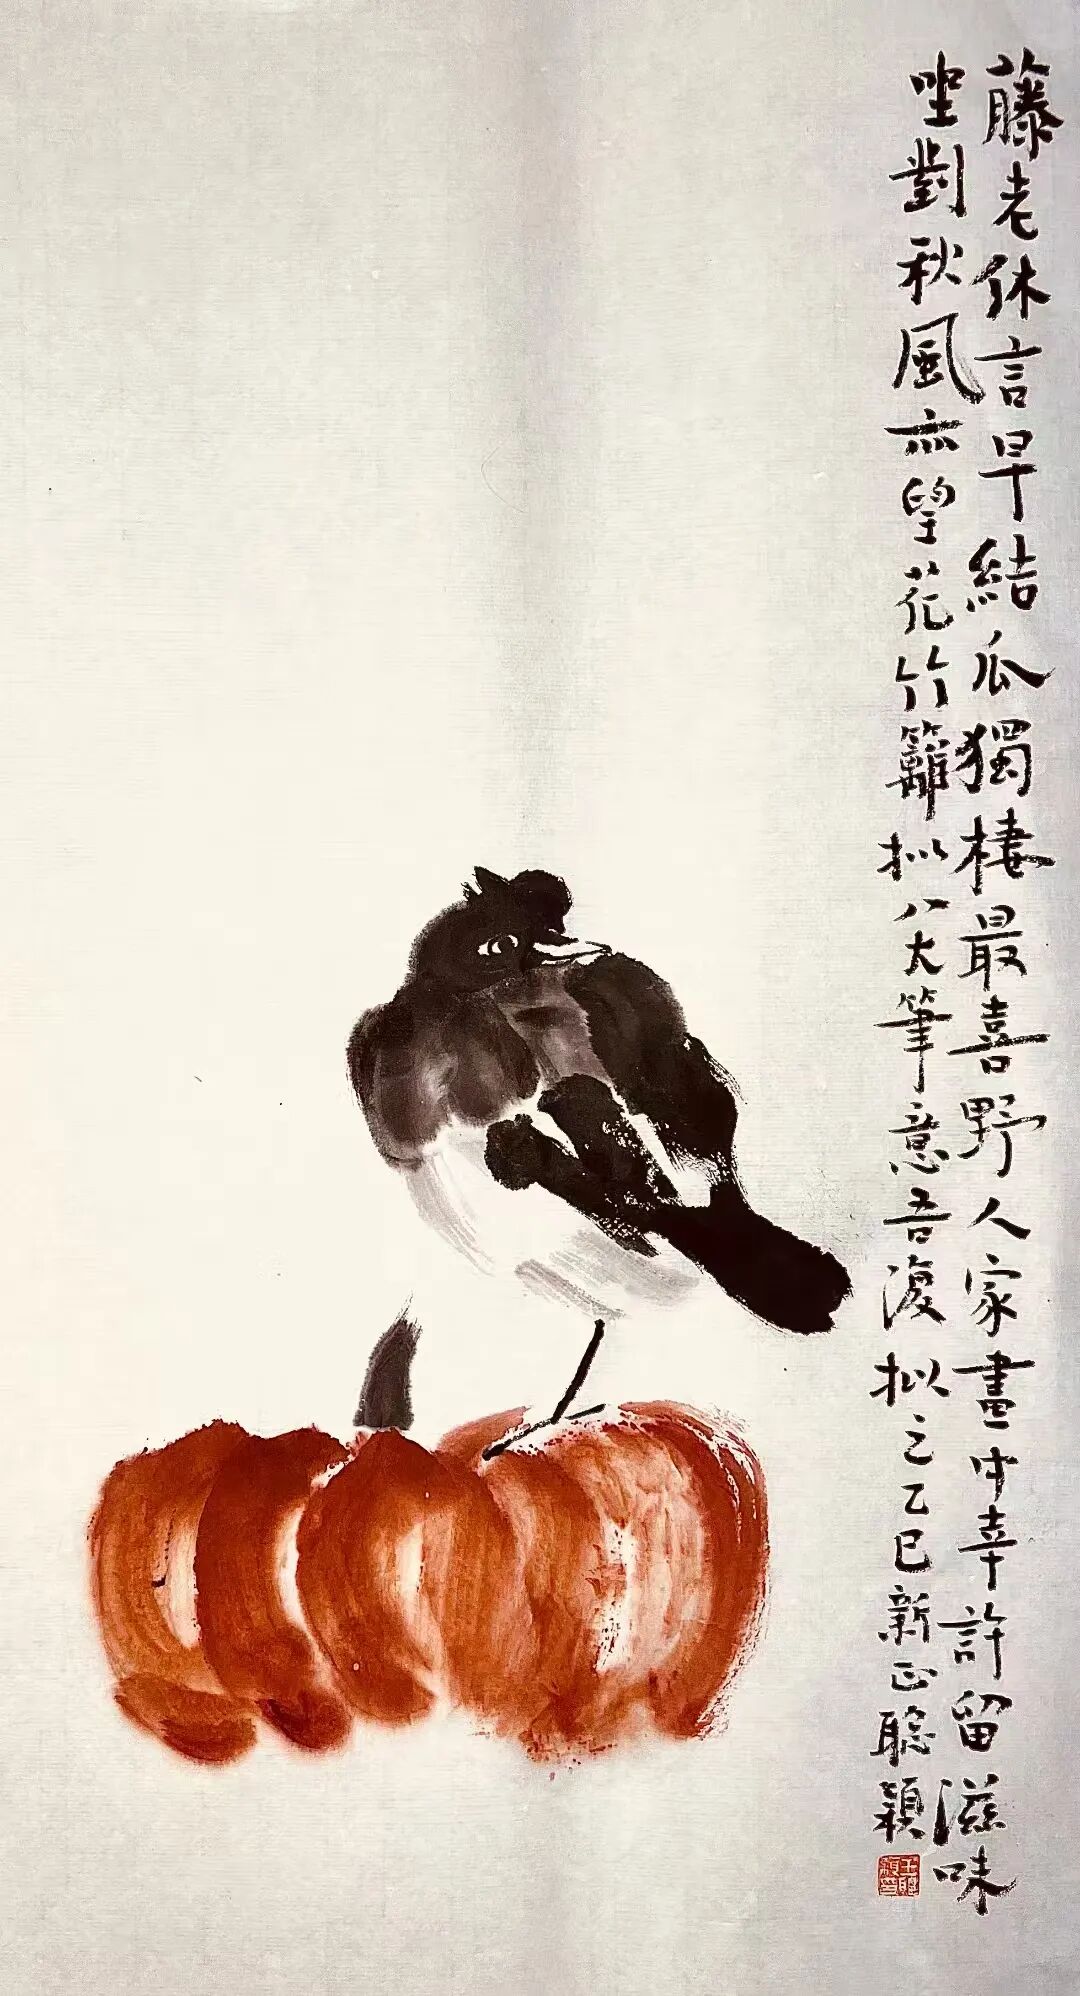 藤老休言早結瓜獨棲最喜野人家畫中幸許留滋味
坐對秋風亦望花竹籬拟八大筆意吾復拟之乙巳新正聪穎